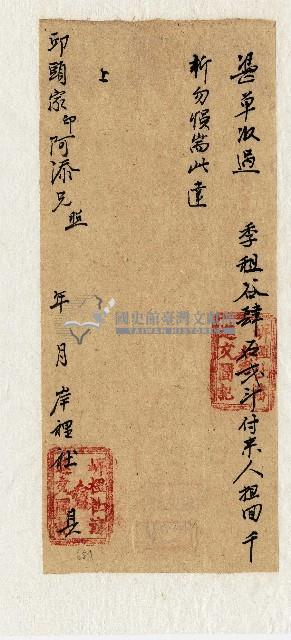 憑單收過 季租谷肆石弍斗付來人担回千
祈勿悞耑此達
上
邱頭家印阿添兄照
年 月 岸裡社 具
國史館臺灣文獻館
TAIWAN HISTORICA